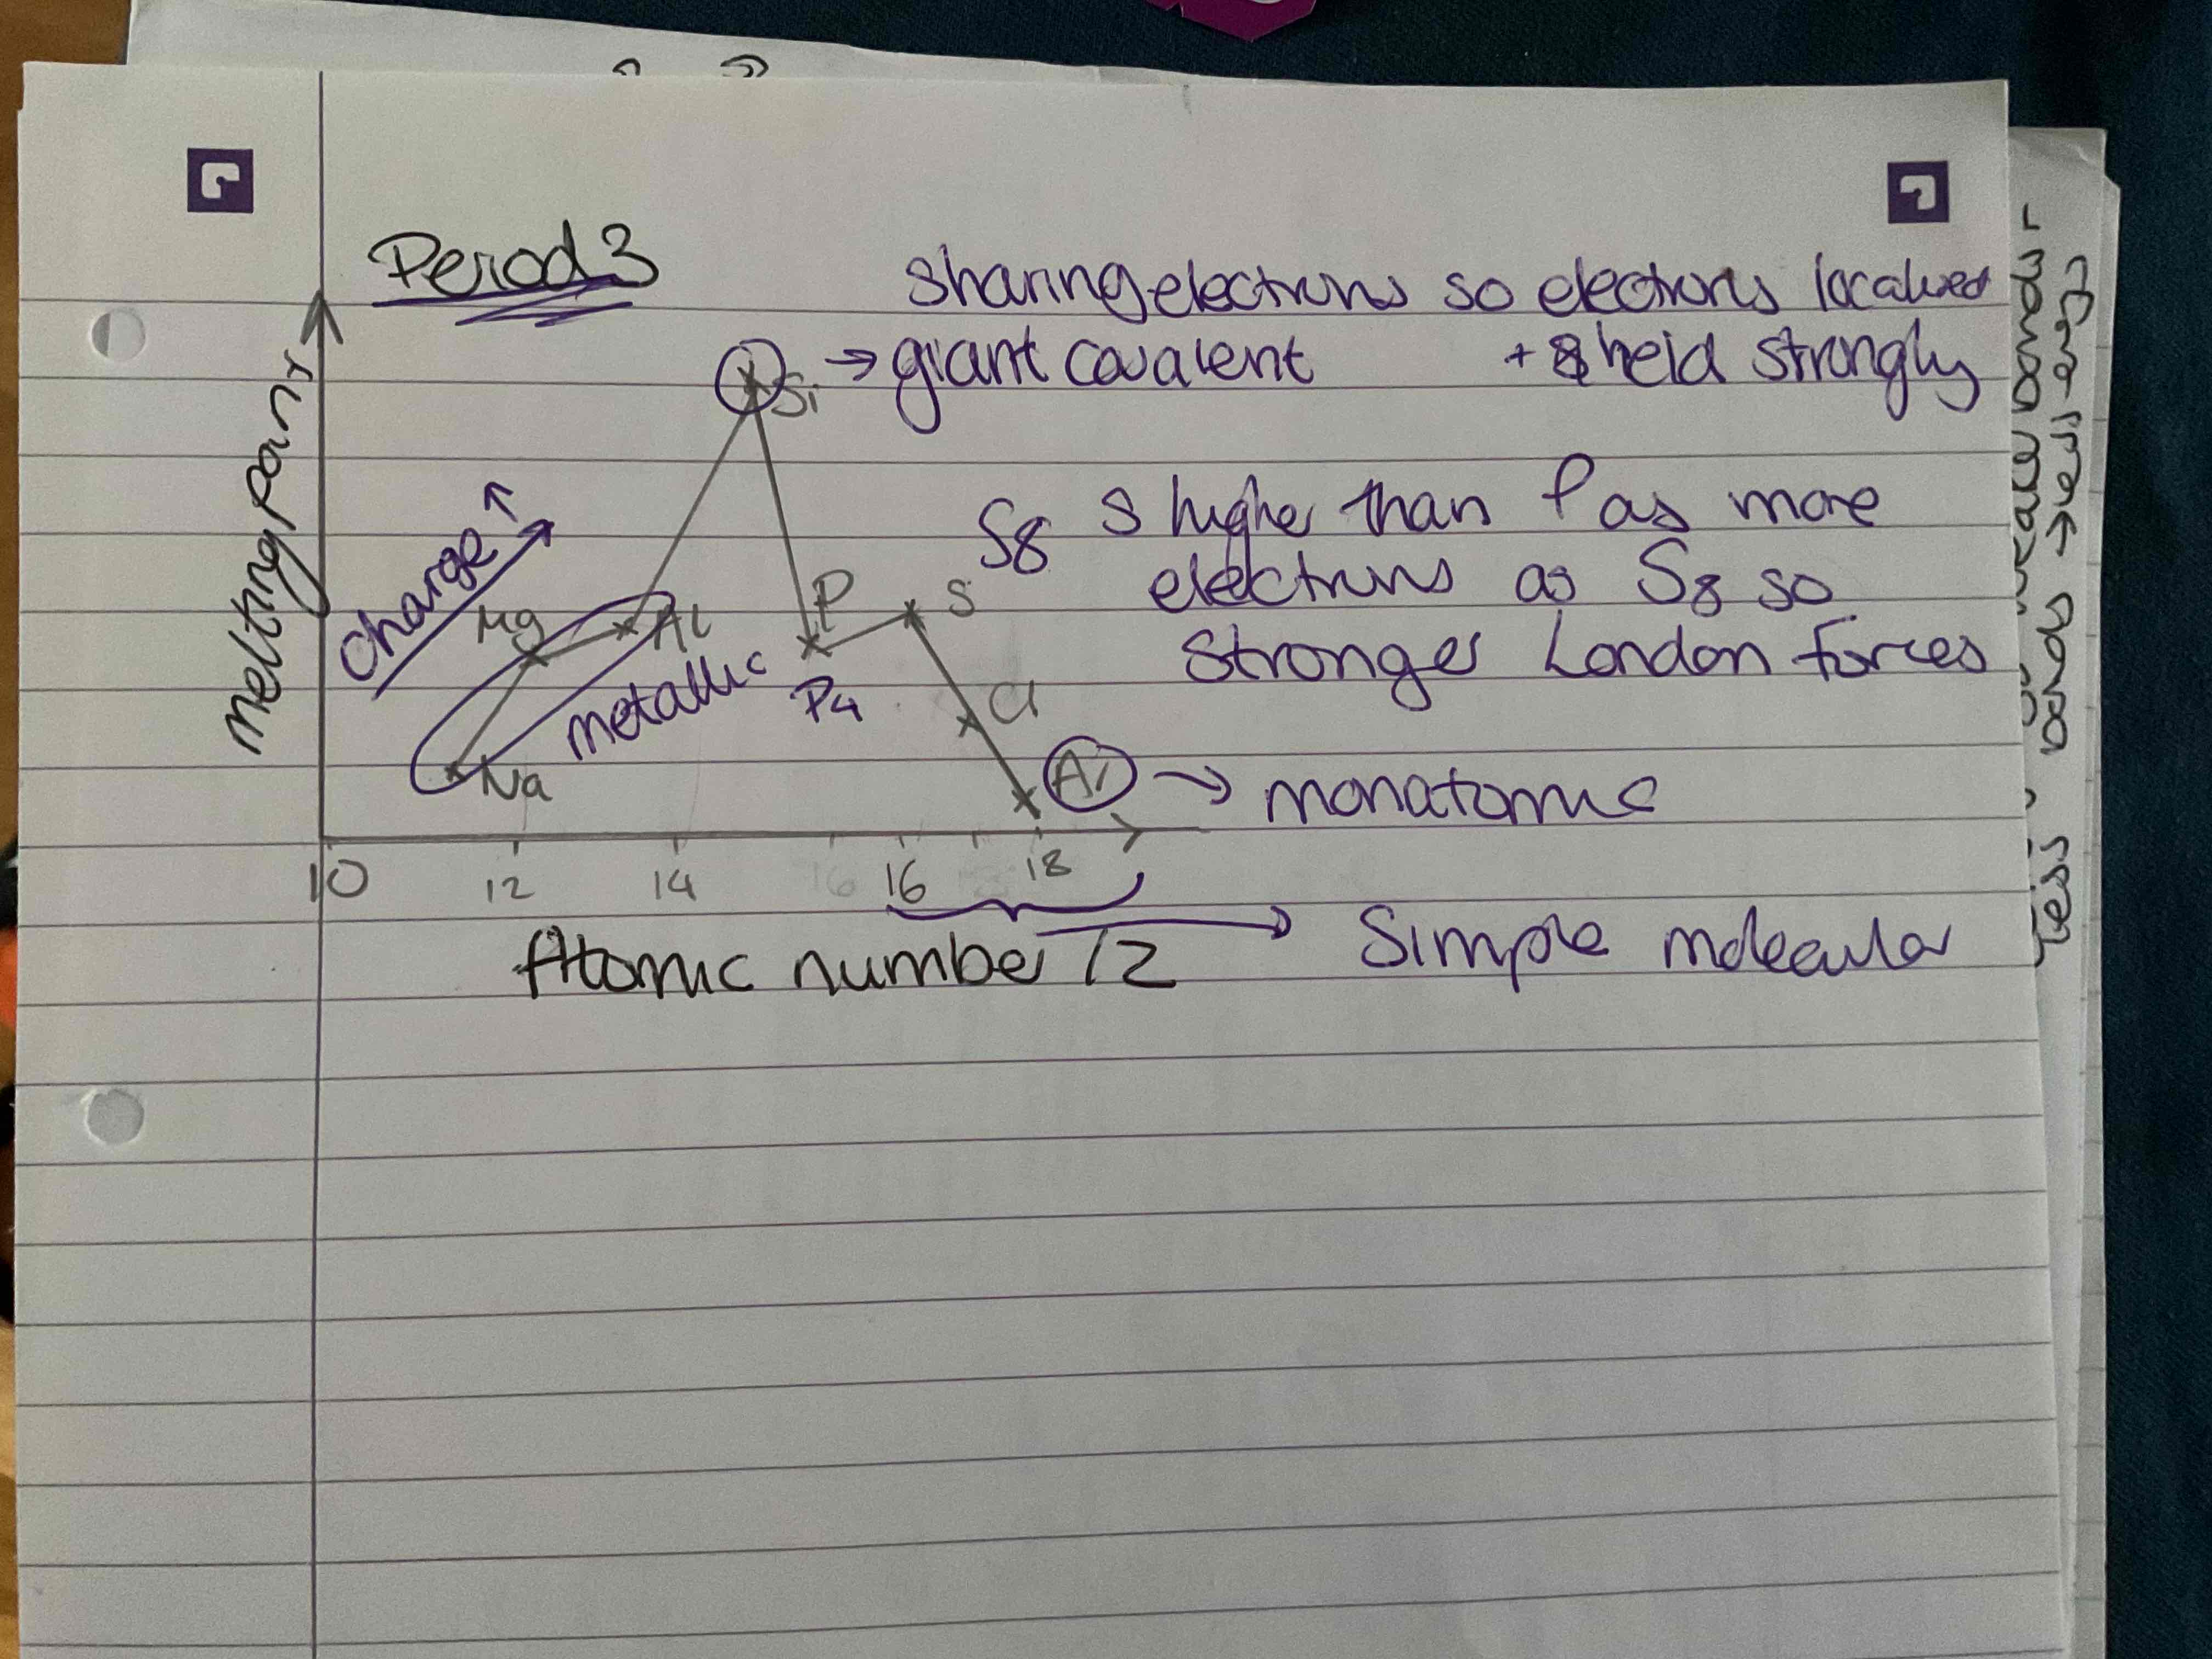 Period 3
sharing electrons so electrons localised
Si → giant covalent + held strongly
Melting point
charge ↑
S8 S higher than P as more
electrons as S8 so
stronger London forces
Mg
Al
P
S
metallic
P4
Cl
Na
Ar → monatomic
10 12 14 16 16 18
Atomic number / Z
→ Simple molecular
bonds
less
bonds → less